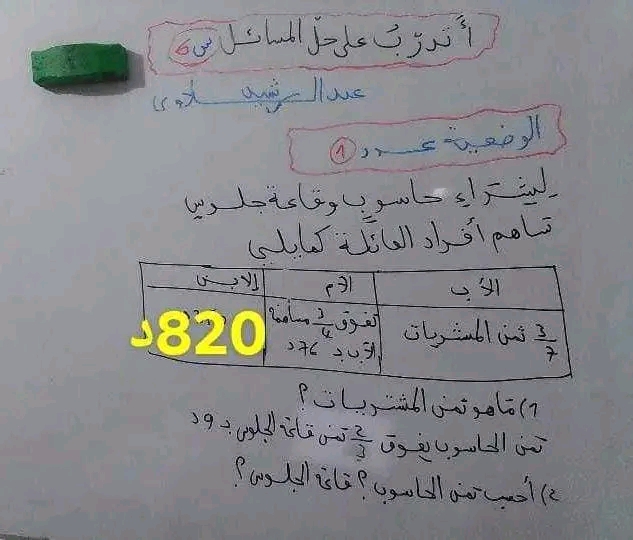 أتدرّبُ على حلّ المسائل س6
عبد الرشيد
الوضعية عـدد 1
لِشراءِ حاسوبٍ وقاعة جلوس
تساهم أفراد العائلة كما يلي
الأب الأم الابن
3/7 ثمن المشتريات تفوق 3/4 مساهمة الأب بـ 76د 820د
1) ما هو ثمن المشتريات؟
ثمن الحاسوب يفوق 2/3 ثمن قاعة الجلوس بـ 9د
2) أحسب ثمن الحاسوب؟ قاعة الجلوس؟